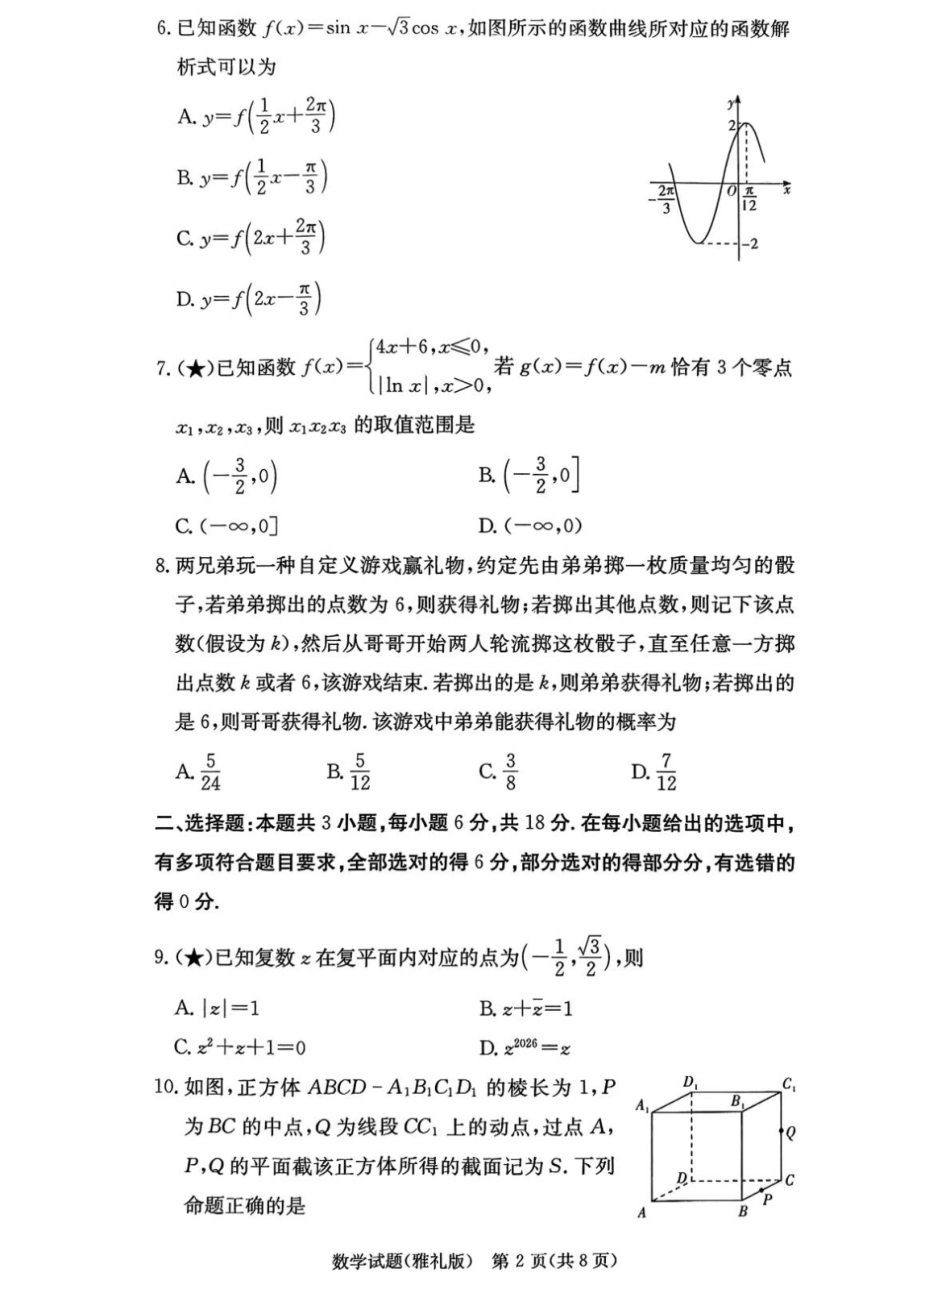 6. 已知函数 f(x)=sin x-√3cos x,如图所示的函数曲线所对应的函数解
析式可以为
A. y=f(1/2 x+2π/3)
B. y=f(1/2 x-π/3)
C. y=f(2x+2π/3)
D. y=f(2x-π/3)
y
2
-2π/3
O
π/12
x
-2
7. (★)已知函数 f(x)={4x+6,x≤0, |ln x|,x>0, 若 g(x)=f(x)-m 恰有 3 个零点
x₁,x₂,x₃,则 x₁x₂x₃ 的取值范围是
A. (-3/2,0) B. (-3/2,0]
C. (-∞,0] D. (-∞,0)
8. 两兄弟玩一种自定义游戏赢礼物,约定先由弟弟掷一枚质量均匀的骰
子,若弟弟掷出的点数为 6,则获得礼物;若掷出其他点数,则记下该点
数(假设为 k),然后从哥哥开始两人轮流掷这枚骰子,直至任意一方掷
出点数 k 或者 6,该游戏结束. 若掷出的是 k,则弟弟获得礼物;若掷出的
是 6,则哥哥获得礼物. 该游戏中弟弟能获得礼物的概率为
A. 5/24 B. 5/12 C. 3/8 D. 7/12
二、选择题:本题共 3 小题,每小题 6 分,共 18 分. 在每小题给出的选项中,
有多项符合题目要求,全部选对的得 6 分,部分选对的得部分分,有选错的
得 0 分.
9. (★)已知复数 z 在复平面内对应的点为(-1/2,√3/2),则
A. |z|=1 B. z+z̅=1
C. z²+z+1=0 D. z²⁰²⁶=z
10. 如图,正方体 ABCD-A₁B₁C₁D₁ 的棱长为 1,P
为 BC 的中点,Q 为线段 CC₁ 上的动点,过点 A,
P,Q 的平面截该正方体所得的截面记为 S. 下列
命题正确的是
D₁
C₁
A₁
B₁
Q
D
C
P
A
B
数学试题(雅礼版) 第 2 页(共 8 页)